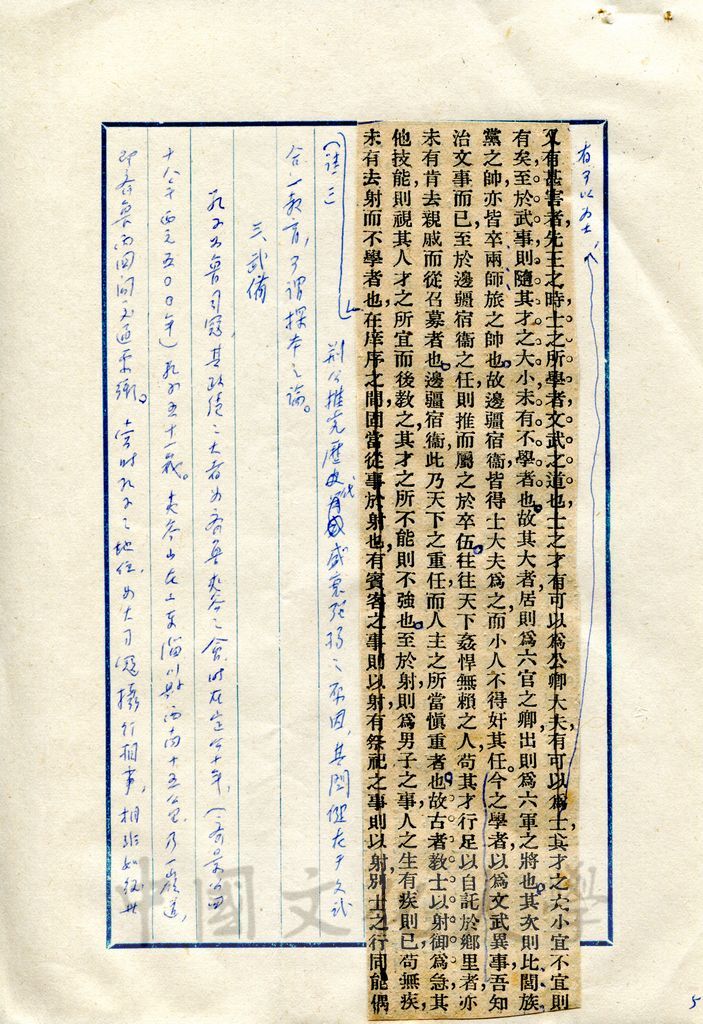 有可以為士、
又有甚害者先王之時士之所學者文武之道也士之才有可以為公卿大夫有可以為士其才之大小宜不宜則
有矣至於武事則隨其才之大小未有不學者也故其大者居則為六官之卿出則為六軍之將也其次則比閭族
黨之師亦皆卒兩師旅之帥也故邊疆宿衞皆得士大夫為之而小人不得奸其任今之學者以為文武異事吾知
治文事而已至於邊疆宿衞之任則推而屬之於卒伍往往天下姦悍無賴之人苟其才行足以自託於鄉里者亦
未有肯去親戚而從召募者也邊疆宿衞此乃天下之重任而人主之所當慎重者也故古者教士以射御為急其
他技能則視其人才之所宜而後教之其才之所不能則不強也至於射則為男子之事人之生有疾則已苟無疾
未有去射而不學者也在庠序之間固當從事於射也有賓客之事則以射有祭祀之事則以射別士之行同能偶
(註三
荊公推究歷代盛衰強弱之原因,其關鍵在乎文武
合一教育,可謂探本之論。
三、武備
孔子為魯司寇,其政績之大者為齊魯夾谷之會,時在定公十年,(齊景公四
十八年西元五〇〇年)孔子五十一歲。夾谷山在山東淄川縣西南十五公里,乃一山道,
即齊魯兩國間交通要衝。當時孔子之地位,為大司寇攝行相事,相非如後世
5
中國文化大學